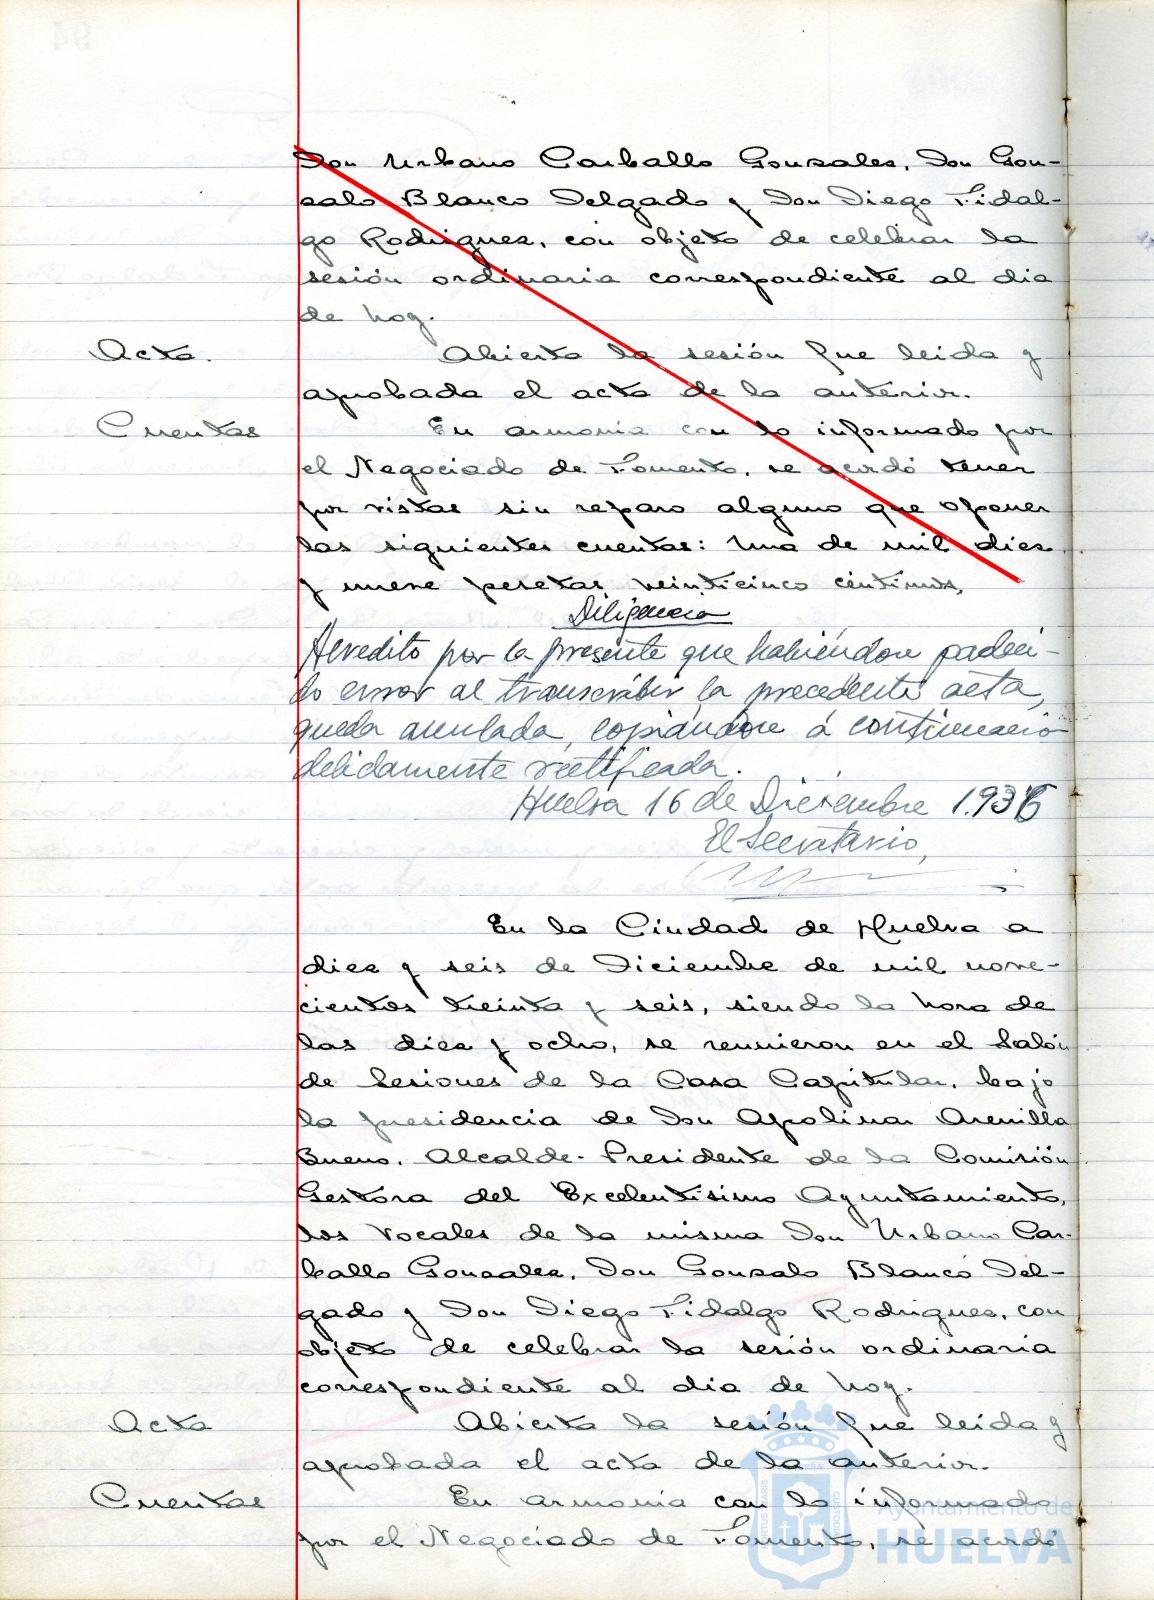 Don Urbano Carballo Gonzales, Don Gon-
zalo Blanco Delgado y Don Diego Fidal-
go Rodrigues, con objeto de celebrar la
sesión ordinaria correspondiente al dia
de hoy.
Acta. Abierta la sesión fue leida y
aprobada el acta de la anterior.
Cuentas En armonia con lo informado por
el Negociado de Fomento, se acordó tener
por vistas sin reparo alguno que oponer
las siguientes cuentas: Una de mil diez
y nueve pesetas veinticinco centimos,
Diligencia
Acredito por la presente que habiéndose padeci-
do error al transcribir la precedente acta,
queda anulada, copiándose á continuación
debidamente rectificada.
Huelva 16 de Diciembre 1.936
El Secretario,
En la Ciudad de Huelva a
diez y seis de Diciembre de mil nove-
cientos treinta y seis, siendo la hora de
las diez y ocho, se reunieron en el Salón
de Sesiones de la Casa Capitular, bajo
la presidencia de Don Apolinar Arenilla
Bueno, Alcalde-Presidente de la Comisión
Gestora del Excelentisimo Ayuntamiento,
los Vocales de la misma Don Urbano Car-
ballo Gonzalez, Don Gonzalo Blanco Del-
gado y Don Diego Fidalgo Rodrigues, con
objeto de celebrar la sesión ordinaria
correspondiente al dia de hoy.
Acta Abierta la sesión fue leida y
aprobada el acta de la anterior.
Cuentas En armonia con lo informado
por el Negociado de Fomento, se acordó
Ayuntamiento de
HUELVA